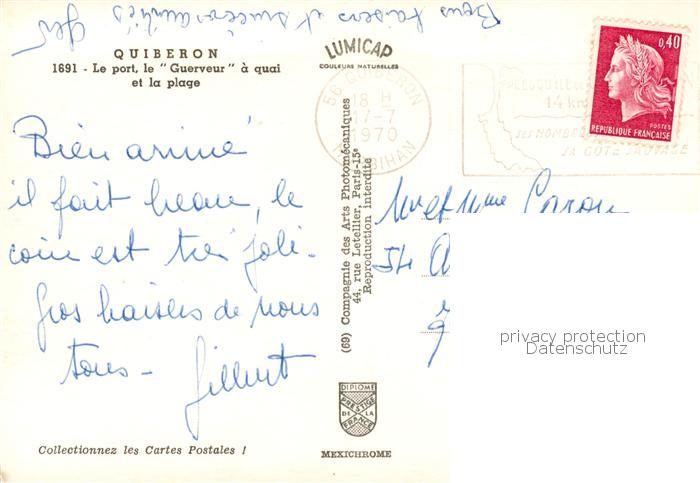 Bons baisers et sincères amitiés
QUIBERON
1691 - Le port, le "Guerveur" à quai
et la plage
LUMICAP
COULEURS NATURELLES
0,40
POSTES
REPUBLIQUE FRANÇAISE
56 QUIBERON
18 H
17-7
1970
MORBIHAN
14 km
SES NOMBR
SA COTE SAUVAGE
Bien arrivé
il fait beau, le
coin est très joli.
Gros baisers de nous
tous - Gilbert
(69) Compagnie des Arts Photomécaniques
44, rue Letellier, Paris-15e
Reproduction interdite
M et Mme Caron
54
privacy protection
Datenschutz
DIPLOME
PRESTIGE
DE LA
FRANCE
Collectionnez les Cartes Postales !
MEXICHROME